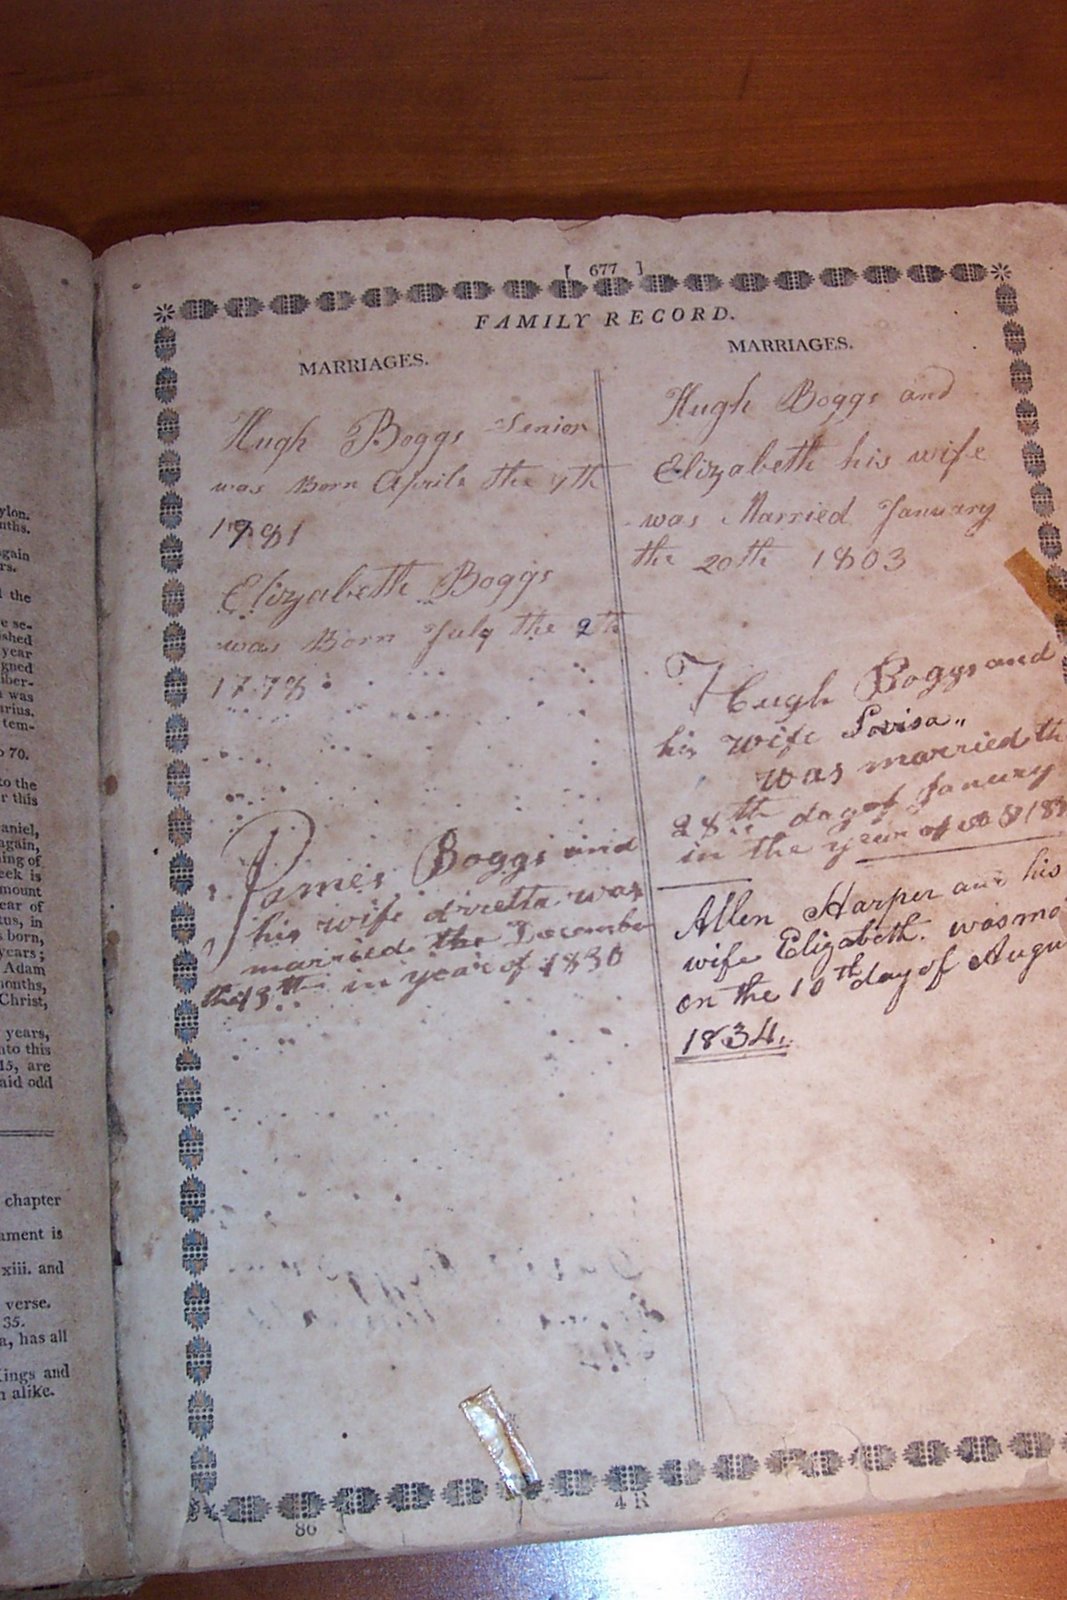 ylon.
nths.
gain
rs.
the
e se-
ished
year
igned
iber-
was
arius.
tem-
70.
to the
r this
aniel,
again,
ning of
eek is
mount
ear of
tus, in
born,
years;
Adam
months,
Christ,
years,
nto this
15, are
aid odd
chapter
ament is
xiii. and
verse.
35.
a, has all
Kings and
alike.
[ 677 ]
FAMILY RECORD.
MARRIAGES.
Hugh Boggs Senior
was Born Aprile the 7th
1781
Elizabeth Boggs
was Born July the 2th
1778
James Boggs and
his wife was
married the December
the 13th in year of 1830
MARRIAGES.
Hugh Boggs and
Elizabeth his wife
was Married January
the 20th 1803
Hugh Boggs and
his wife Lovisa
was married th
28th day of January
in the year of
Allen Harper and his
wife Elizabeth. was ma
on the 10th day of Augu
1834.
86
4 R